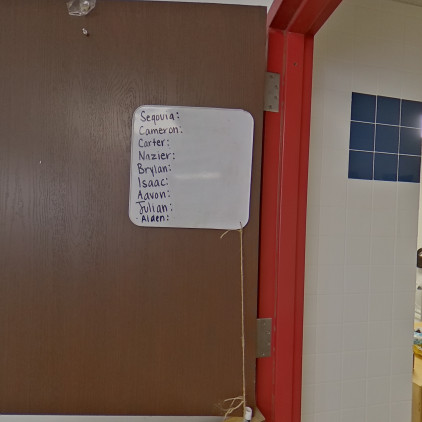 Segovia:
Cameron:
Carter:
Nazier:
Brylan:
Isaac:
Aavon:
Julian:
Alden: